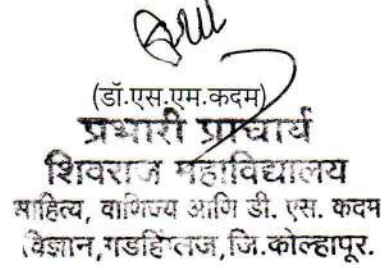 (डॉ.एस.एम.कदम)
प्रभारी प्राचार्य
शिवराज महाविद्यालय
साहित्य, वाणिज्य आणि डी. एस. कदम
विज्ञान,गडहिंग्लज,जि.कोल्हापूर.